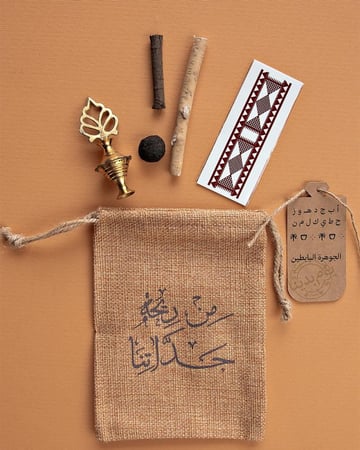 من ريحة
جداتنا
ا ب ج د هـ و ز
ح ط ي ك ل م ن
الجوهرة البابطين